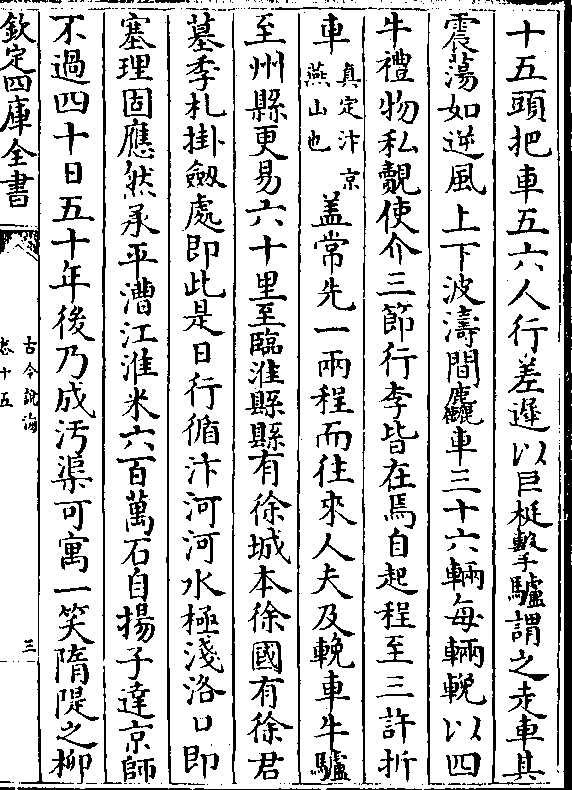 十五頭把車五六人行差遲以巨梃擊驢謂之走車其
震蕩如逆風上下波濤間麤車三十六輛每輛輓以四
牛禮物私覿使介三節行李皆在焉自起程至三許折
車真定汴京燕山也盖常先一兩程而往來人夫及輓車牛驢
至州縣更易六十里至臨淮縣縣有徐城本徐國有徐君
墓季札掛劒處即此是日行循汴河河水極淺洛口即
塞理固應然承平漕江淮米六百萬石自揚子達京師
不過四十日五十年後乃成汚渠可寓一笑隋隄之柳
欽定四庫全書
古今説海
卷十五
三